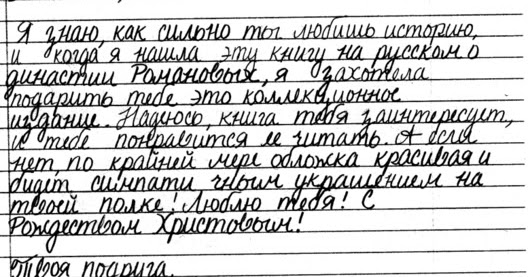 Я знаю, как сильно ты любишь историю,
и когда я нашла эту книгу на русском о
династии Романовых, я захотела
подарить тебе это коллекционное
издание. Надеюсь, книга тебя заинтересует,
и тебе понравится ее читать. А если
нет, по крайней мере обложка красивая и
будет симпатичным украшением на
твоей полке! Люблю тебя! С
Рождеством Христовым!
Твоя подруга.